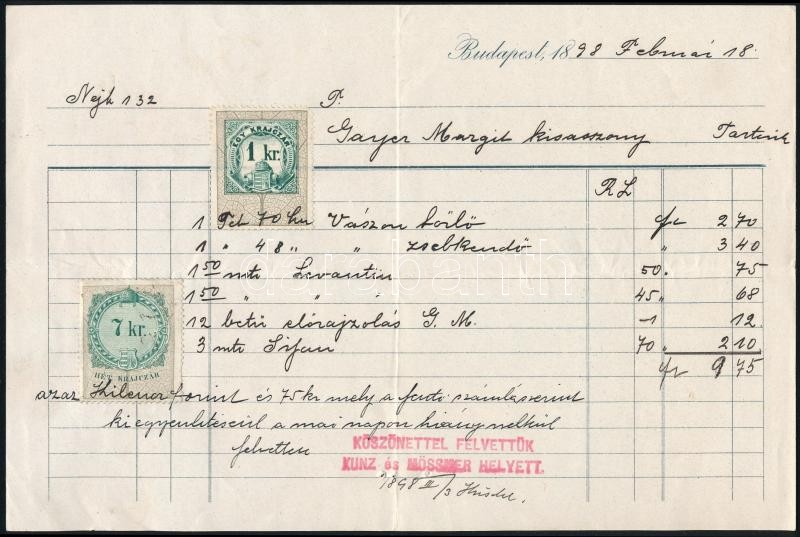 Budapest, 1898 Február 18.
Nejh 132
T.
Gayer Margit kisasszony
EGY KRAJCZÁR
1 kr.
1 Tct 70 kr Vászon törlő frt 2 70
1 " 48 " " zsebkendő " 3 40
1 50 mtr Levantin 50. 75
1 50 " " 45 " 68
12 betű előrajzolás G. M. -1 12.
3 mtr Sifon 70 " 2 10
frt 9 75
7 kr.
HÉT KRAJCZÁR
azaz Kilencz forint és 75 kr mely a fenti számla szerint
kiegyenlítéséül a mai napon hiány nélkül
felvettem
KÖSZÖNETTEL FELVETTÜK
KUNZ és MÖSSMER HELYETT.
1898 III/3